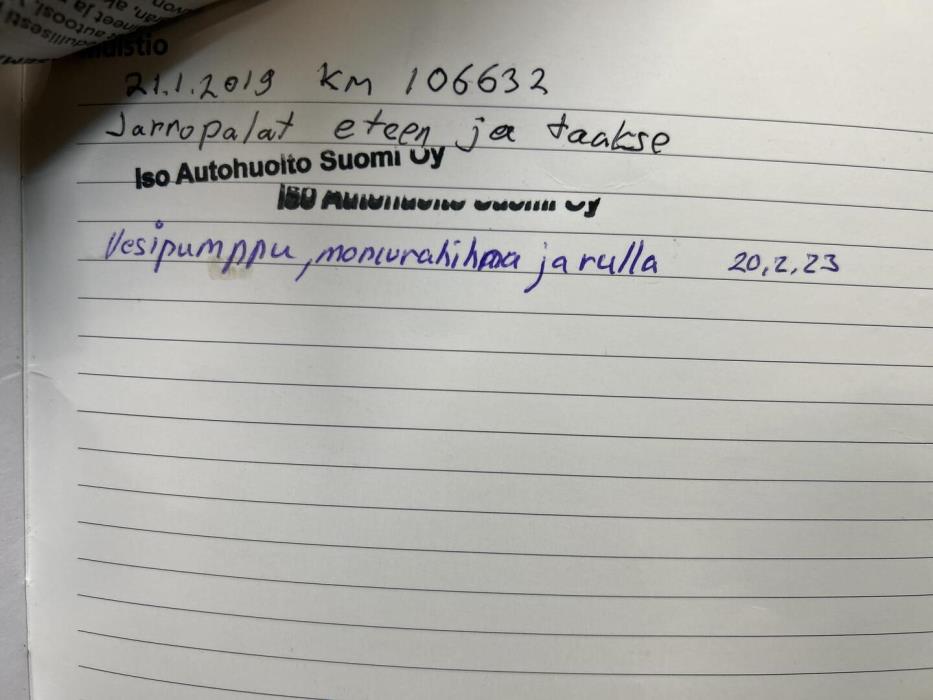 uistio
21.1.2019 KM 106632
Jarropalat eteen ja taakse
Iso Autohuolto Suomi Oy
Iso Autohuolto Suomi Oy
Vesipumppu, moniurahihna ja rulla 20,2,23